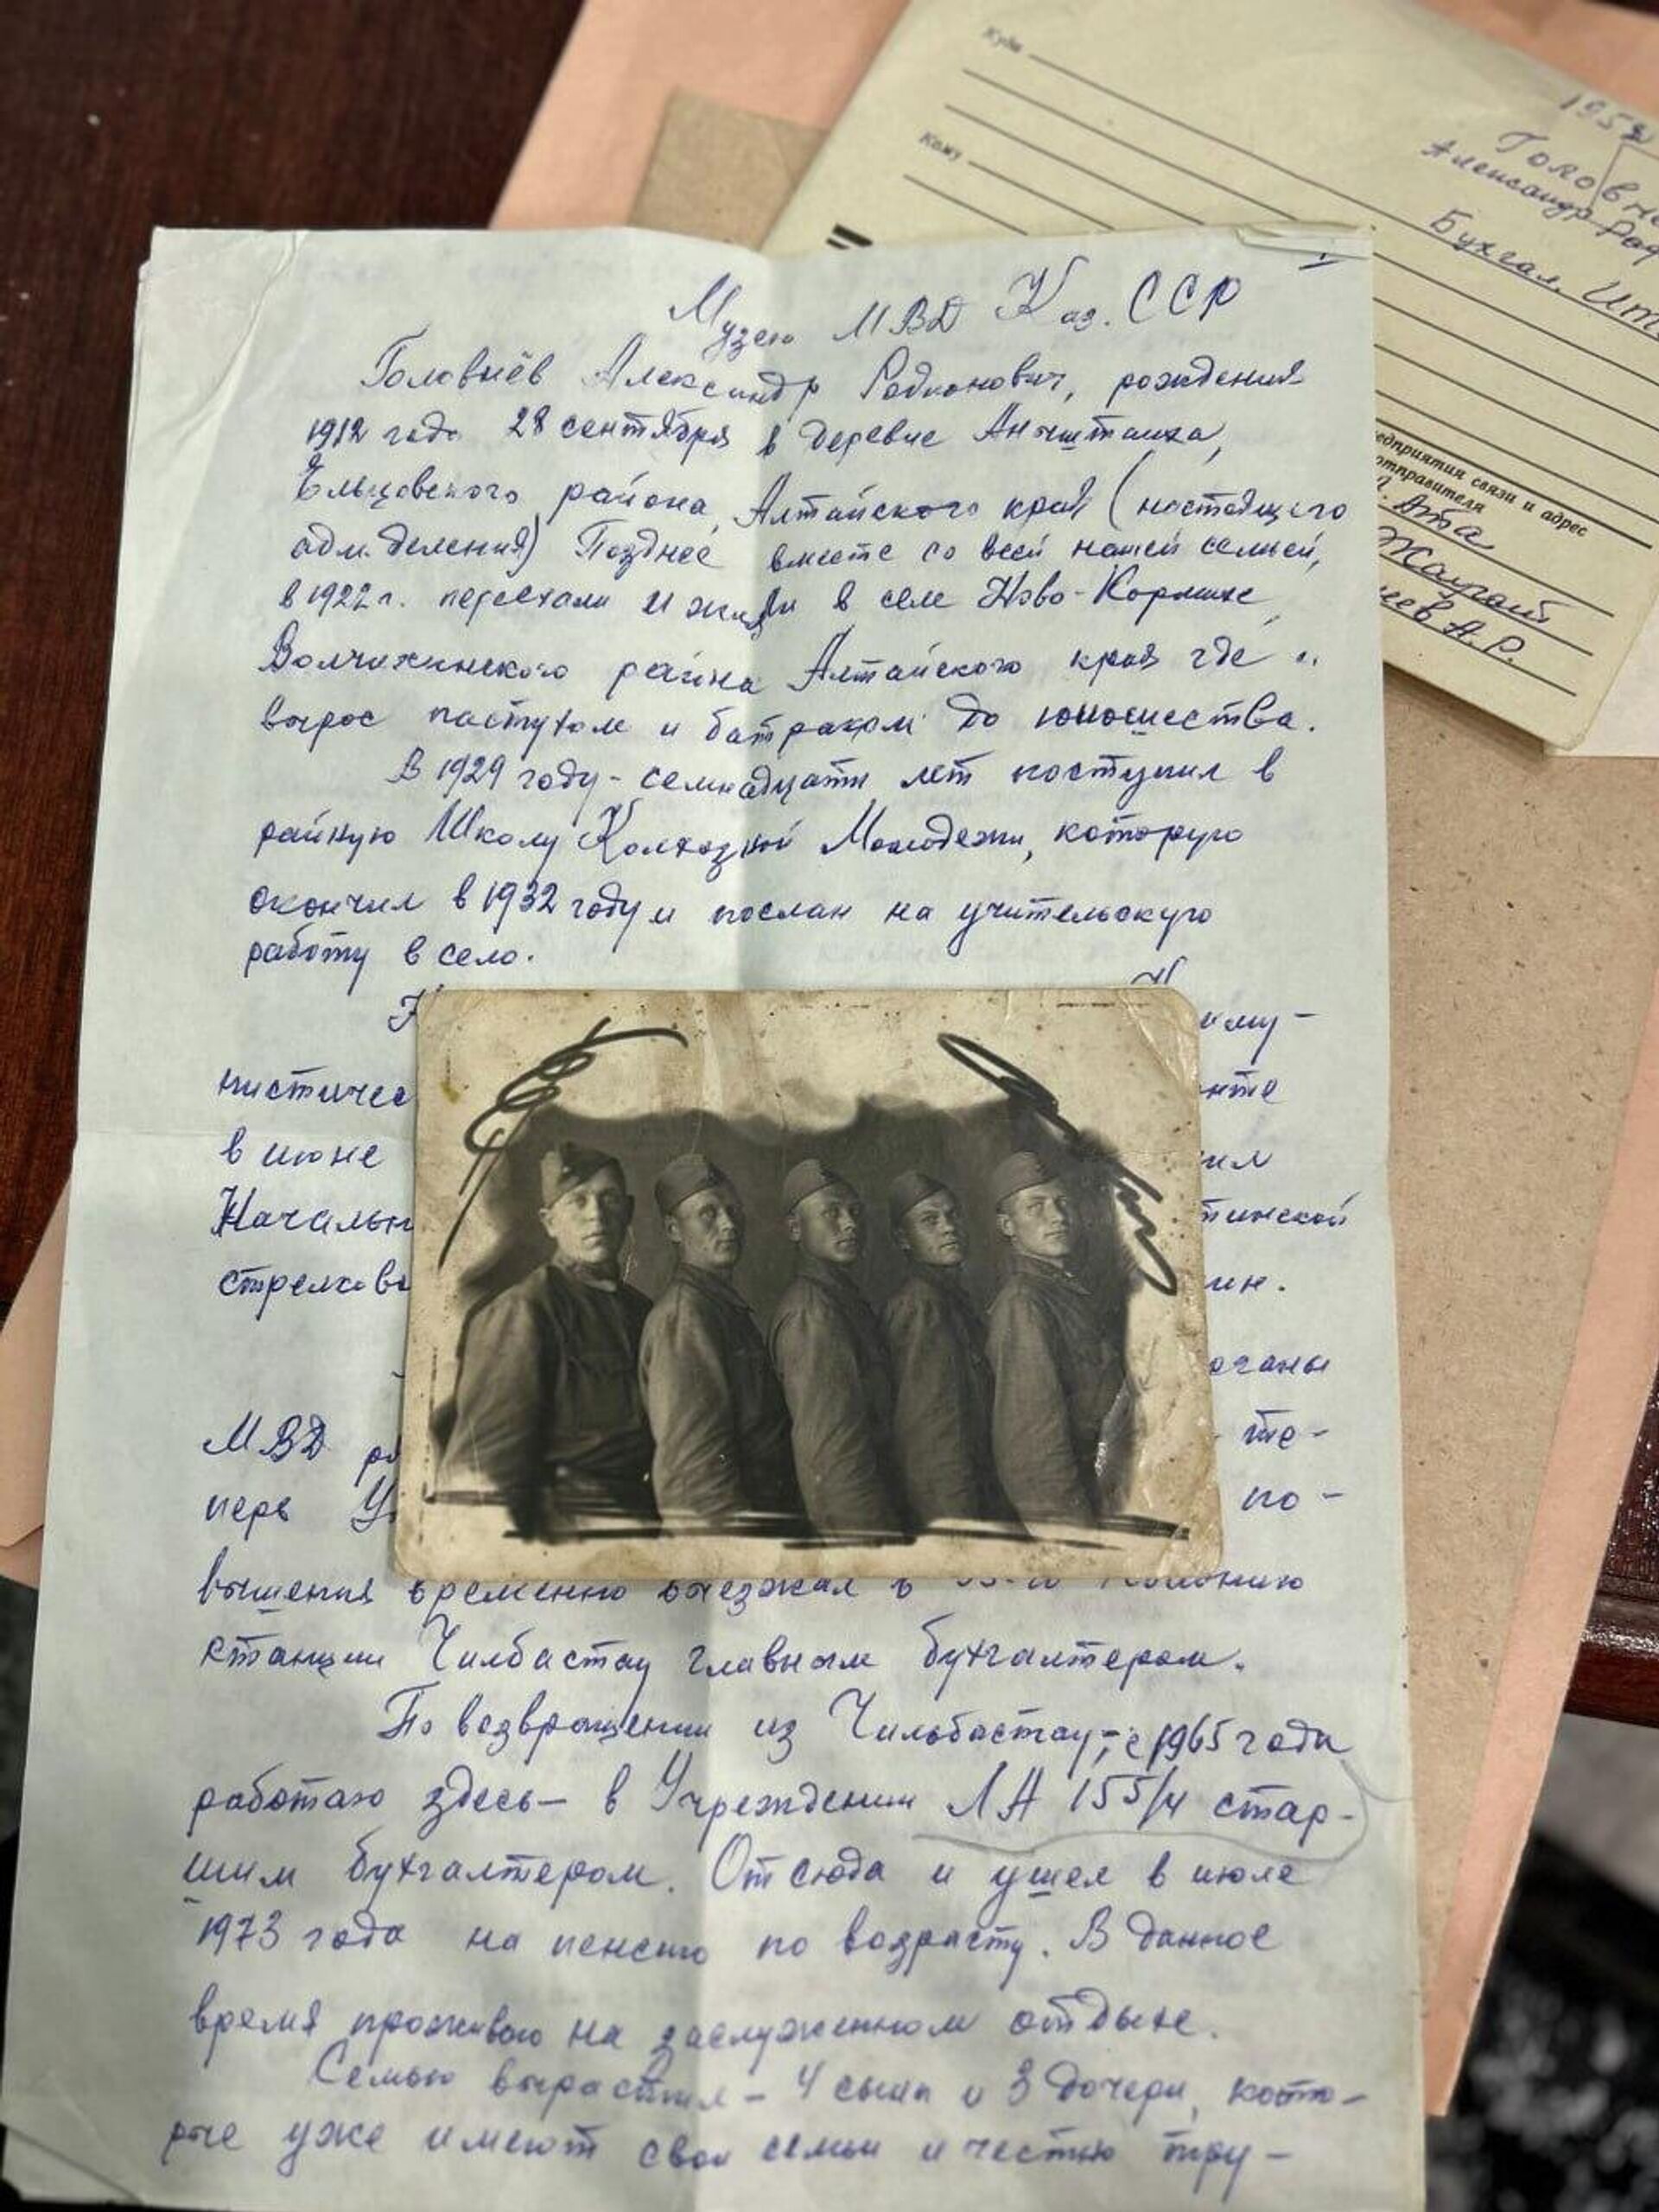 Куда
Кому
1952
Александр
Бухгал.
предприятия связи и адрес
отправителя
Ата
Жаугаш
А.Р.
I
Музею МВД Каз. ССР
Головнёв Александр Родионович, рождения
1912 года 28 сентября в деревне
Ельцовского района, Алтайского края (настоящего
адм. деления) Позднее вместе со всей нашей семьёй,
в 1922 г. переехали и жили в селе Ново-Кормихе,
Волчихинского района Алтайского края где и
вырос пастухом и батраком до юношества.
В 1929 году - семнадцати лет поступил в
районую Школу Колхозной Молодежи, которую
окончил в 1932 году и послан на учительскую
работу в село.
К
кому-
нистичес
нте
в июне
ил
Начальн
тинской
стрелков
ин.
органы
МВД ра
те-
перь У
по-
вышения временно выезжал в колонию
станции Чилбастау главным бухгалтером.
По возвращении из Чильбастау, - с 1965 года
работаю здесь - в Учреждении ЛА 155/4 стар-
шим бухгалтером. Отсюда и ушел в июле
1973 года на пенсию по возрасту. В данное
время проживаю на заслуженном отдыхе.
Семью вырастил - 4 сына и 3 дочери, кото-
рые уже имеют свои семьи и честно тру-